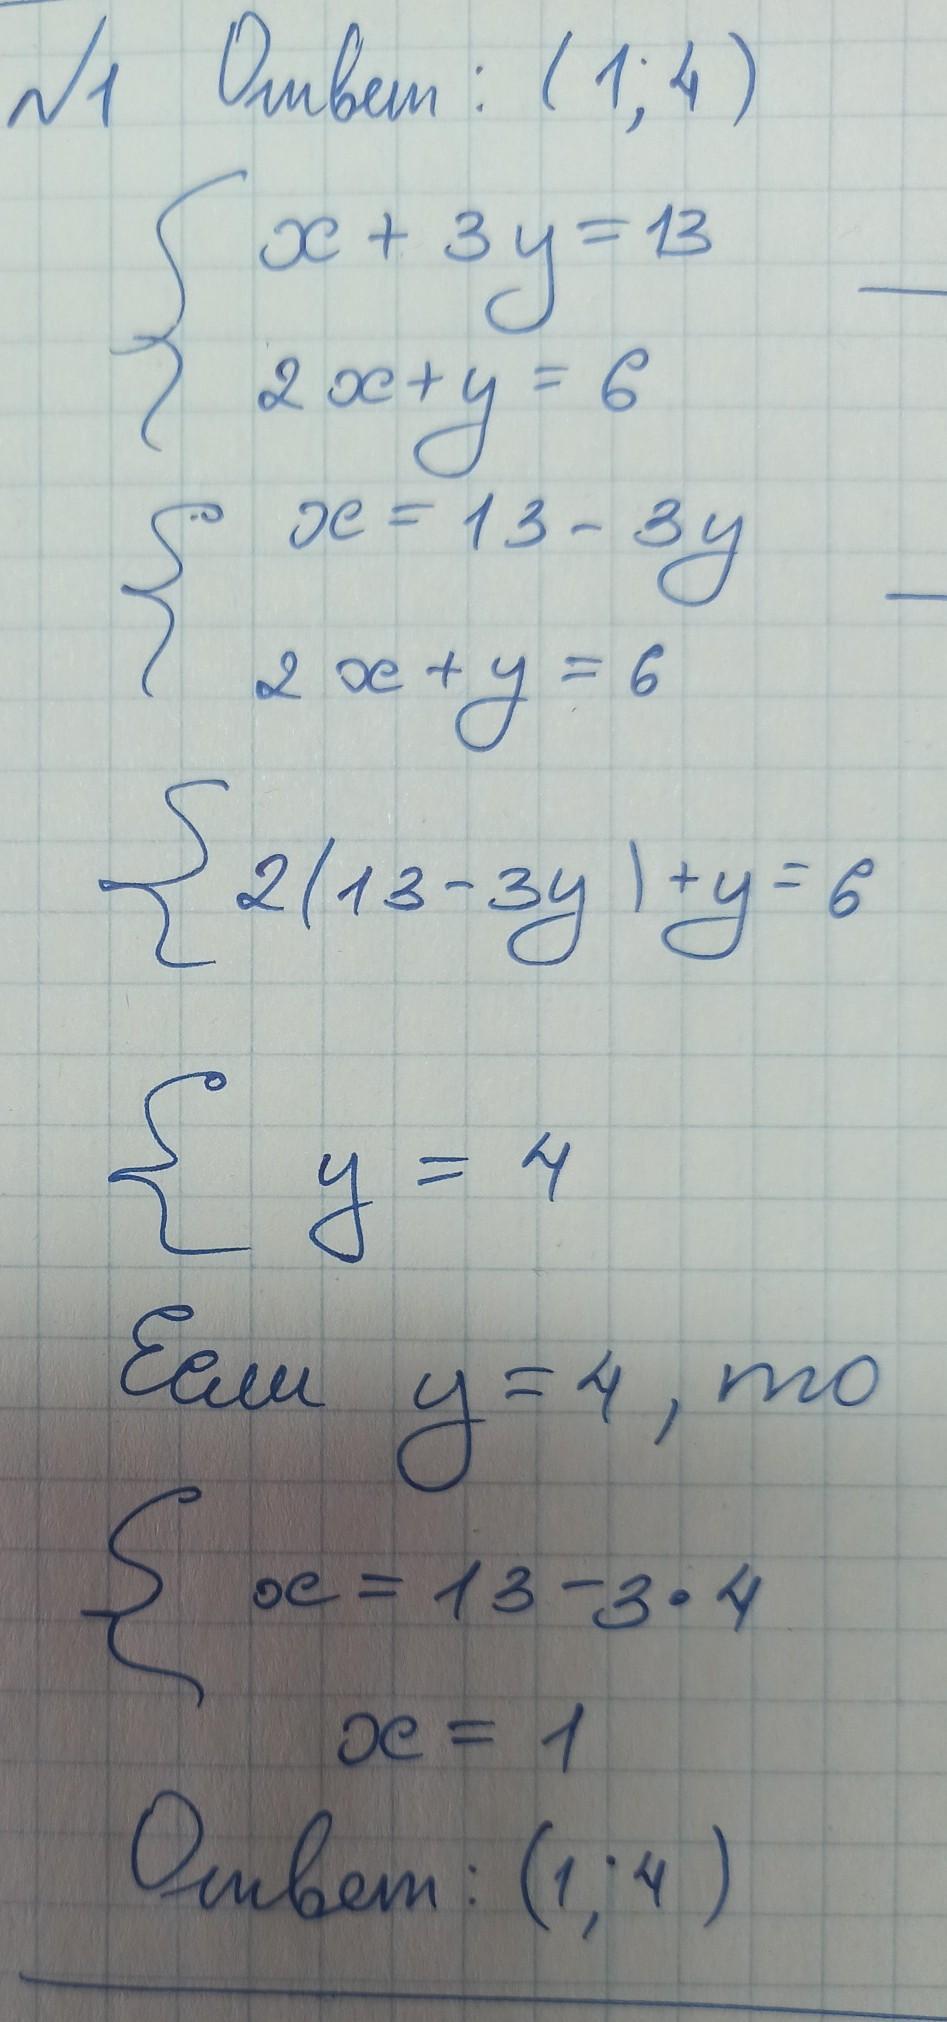 №1 Ответ: (1; 4)
x + 3y = 13
2x + y = 6
x = 13 - 3y
2x + y = 6
2(13 - 3y) + y = 6
y = 4
Если y = 4, то
x = 13 - 3 · 4
x = 1
Ответ: (1; 4)